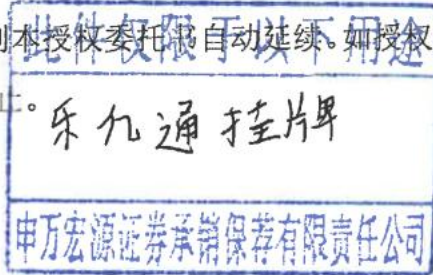 则本授权委托书自动延续。如授权
此件仅限于以下用途
止。
乐亿通挂牌
申万宏源证券承销保荐有限责任公司